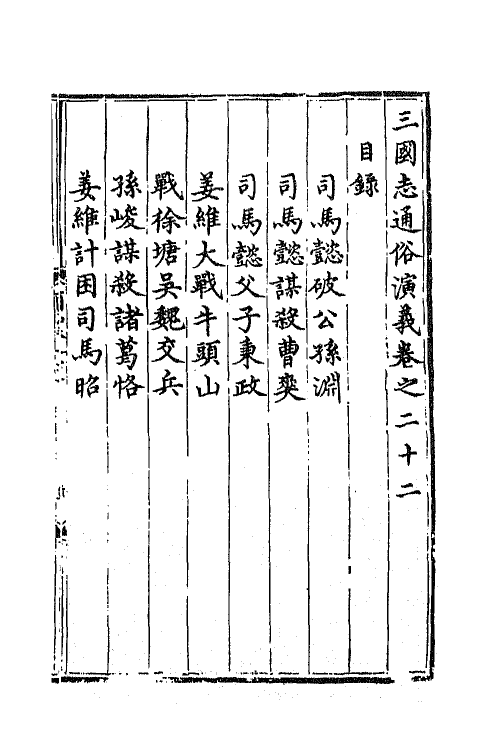 三國志通俗演義卷之二十二
目錄
司馬懿破公孫淵
司馬懿謀殺曹爽
司馬懿父子秉政
姜維大戰牛頭山
戰徐塘吳魏交兵
孫峻謀殺諸葛恪
姜維計困司馬昭